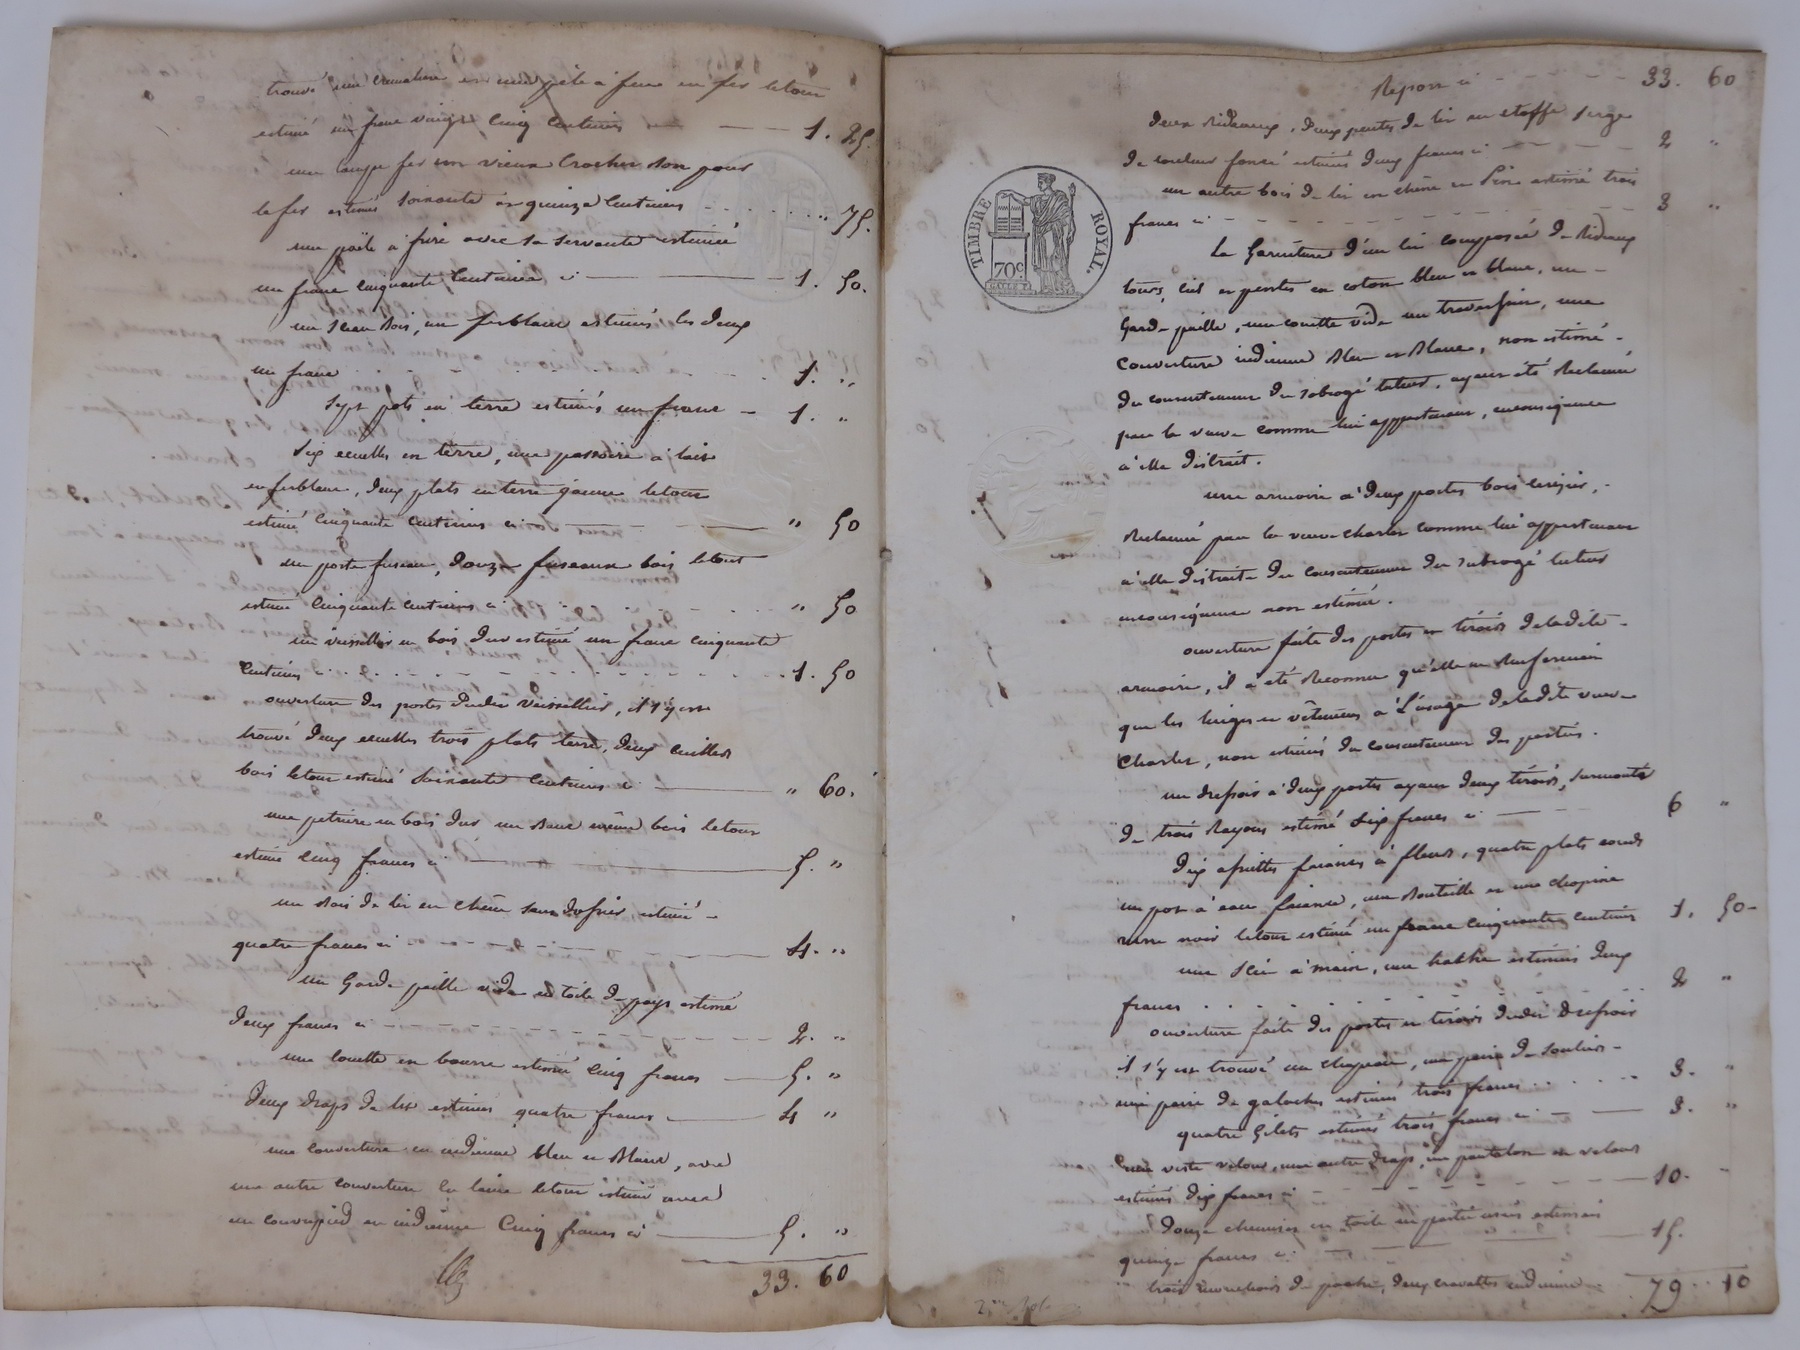 trouvé une cremaliere et une pele à feux en fer letout
estimé un franc vingt cinq centimes 1. 25.
une lampe fer un vieux crochet son pour
le fer estimés soixante et quinze centimes 75.
une poële a frire avec sa servante estimée
un franc cinquante centimes ci 1. 50.
un seau bois, un ferblanc estimés les deux
un franc 1. "
sept pots en terre estimés un franc 1. "
six ecuelles en terre, une passoire à lait
en ferblanc, deux plats en terre jaune letout
estimé cinquante centimes ci " 50
un porte fuseau, douze fuseaux bois letout
estimé cinquante centimes ci " 50
un vaissellier en bois dur estimé un franc cinquante
centimes ci 1. 50
ouverture des portes dudit vaissellier, il s'y est
trouvé deux ecuelles trois plats terre, deux cuillers
bois letout estimé soixante centimes ci " 60.
une petriere en bois dur un banc même bois letout
estimé cinq francs ci 5. "
un bois de lit en chêne sans dossier, estimé
quatre francs ci 4. "
un garde paille vide en toile de pays estimé
deux francs ci 2. "
une couette en bourre estimée cinq francs 5. "
deux draps de lit estimés quatre francs 4 "
une couverture en indienne bleu et blanc, avec
une autre couverture en laine letout estimé avec
un couvrepied en indienne cinq francs ci 5. "
33. 60
Report ci 33. 60
deux rideaux, deux pentes de lit en etoffe serge
de couleur foncé estimés deux francs ci 2 "
un autre bois de lit en chêne et pin estimé trois
francs ci 3 "
La garniture d'un lit composée de rideaux
tours, ciel et pentes en coton bleu et blanc, un
garde paille, une couette vide un traversin, une
couverture indienne bleu et blanc, non estimé
du consentement du subrogé tuteur, ayant été reclamé
par la veuve comme lui appartenant, enconsequence
à elle distrait.
une armoire à deux portes bois cerisier,
reclamée par la veuve charlet comme lui appartenant
à elle distraite du consentement du subrogé tuteur
enconséquence non estimée.
ouverture faite des portes et tiroirs deladite
armoire, il a été reconnu qu'elle ne renfermait
que les linges et vêtements à l'usage deladite veuve
Charlet, non estimés du consentement des parties.
un dressoir à deux portes ayant deux tiroirs, surmonté
de trois rayons estimé six francs ci 6 "
dix assiettes faiance à fleurs, quatre plats ronds
un pot à eau faiance, une bouteille et une chopine
verre noir letout estimé un franc cinquante centimes 1. 50
une scie à main, une hache estimées deux
francs 2 "
ouverture faite des portes et tiroirs dudit dressoir
il s'y est trouvé un chapeau, une paire de souliers
une paire de galoches estimés trois francs 3. "
quatre gilets estimés trois francs ci 3. "
une veste velours, une autre drap, un pantalon en velours
estimés dix francs ci 10. "
douze chemises en toile en partie usées estimées
quinze francs ci 15.
trois mouchoirs de poche, deux cravattes indienne
79 10
TIMBRE ROYAL.
70c